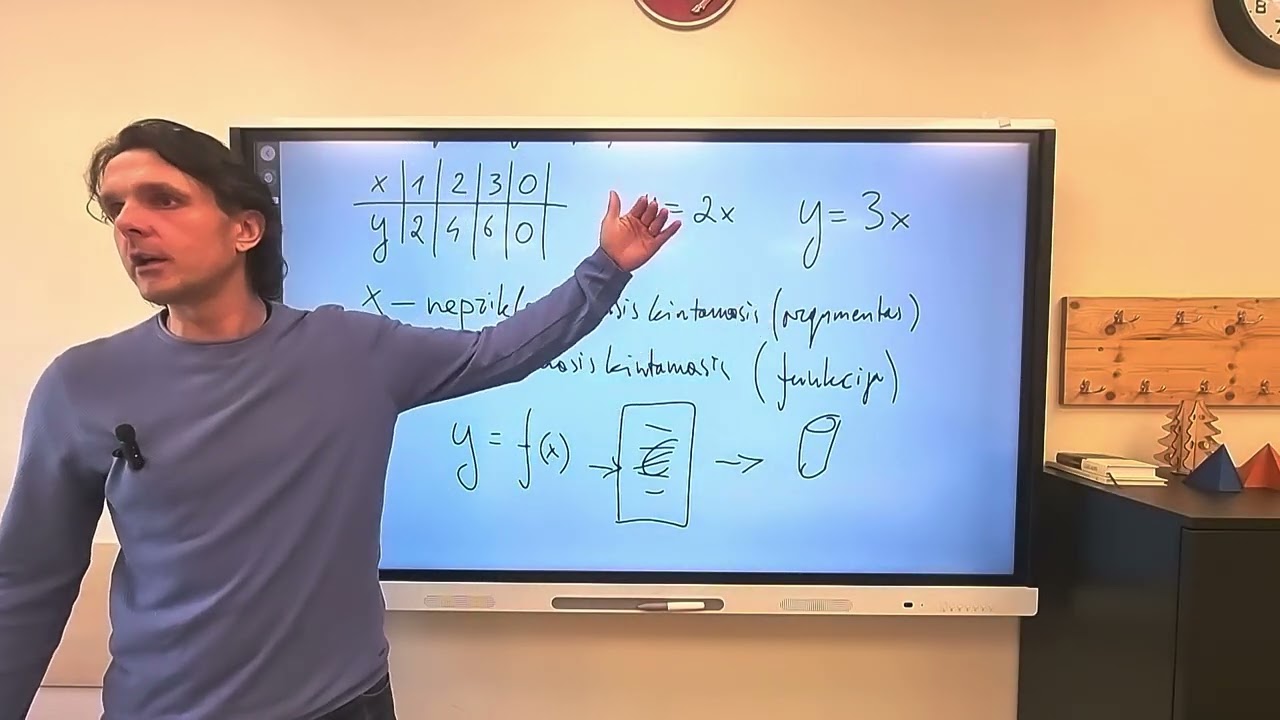 x | 1 | 2 | 3 | 0
y | 2 | 4 | 6 | 0
= 2x y = 3x
x – neprikl sis kintamasis (argumentas)
masis kintamasis (funkcija)
y = f(x) → € →
8
7